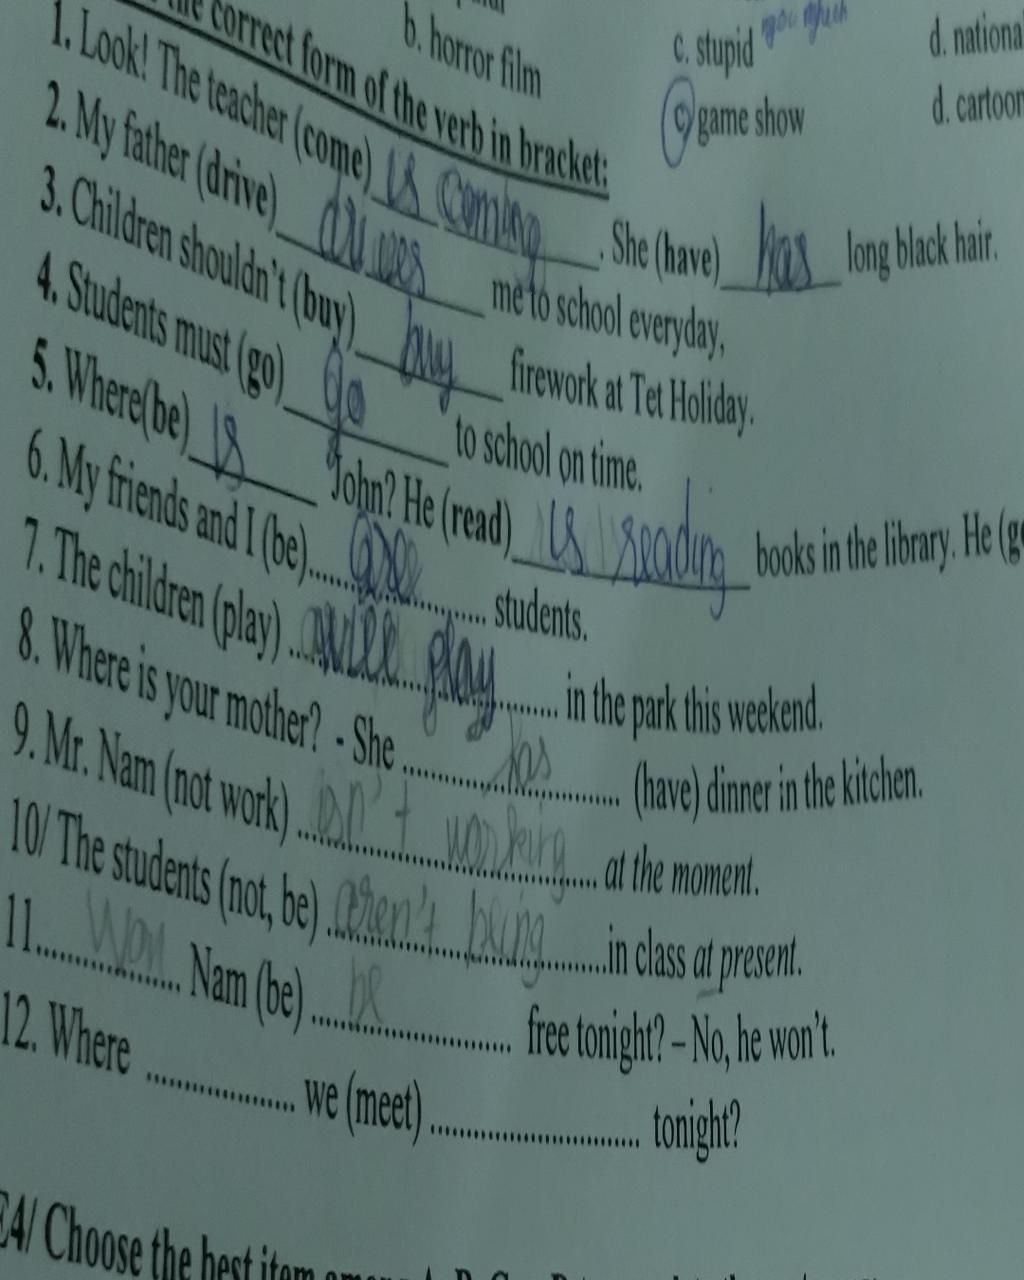 b. horror film c. stupid d. nationa
the correct form of the verb in bracket: c game show d. cartoon
1. Look! The teacher (come) is coming. She (have) has long black hair.
2. My father (drive) drives me to school everyday,
3. Children shouldn't (buy) buy firework at Tet Holiday.
4. Students must (go) go to school on time.
5. Where(be) is John? He (read) is reading books in the library. He (g
6. My friends and I (be)...... are ............ students.
7. The children (play) ... will play ......... in the park this weekend.
8. Where is your mother? - She ............ has ............ (have) dinner in the kitchen.
9. Mr. Nam (not work) isn't working at the moment.
10/ The students (not, be) aren't being in class at present.
11.................... Nam (be) be ............ free tonight? – No, he won't.
12. Where .................... we (meet) ............................ tonight?
E4/ Choose the best item